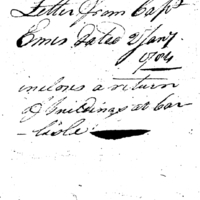 Letter from Capt
Emes dated 2 Jany
1804
incloses a return
of buildings at Car-
lisle